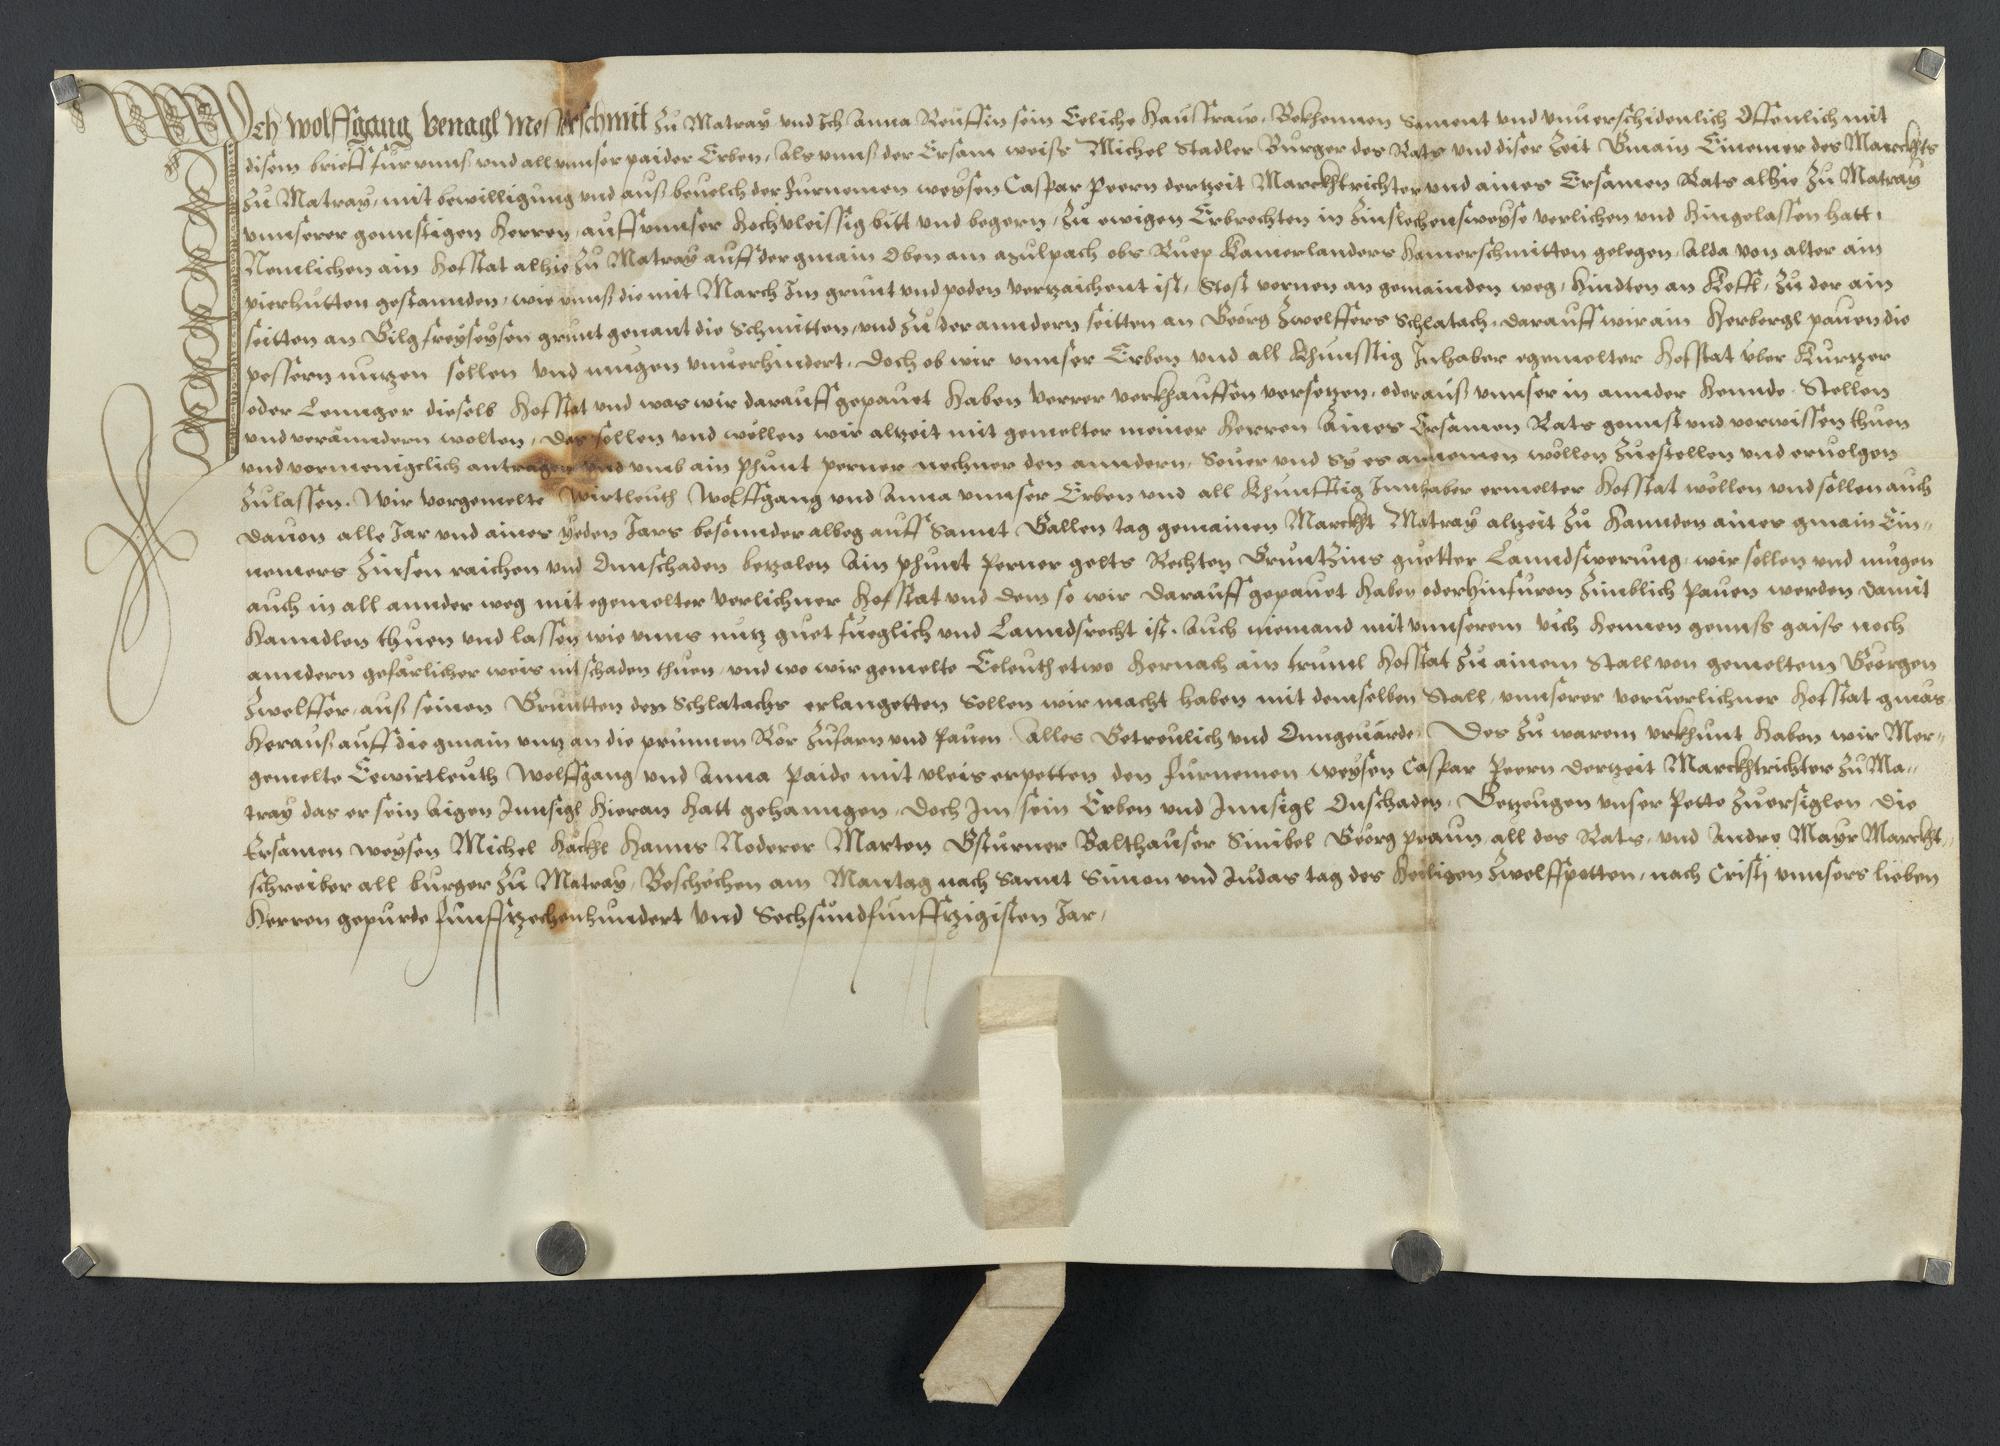 Ich Wolffgang Venagl Messerschmit zů Matray und Ich Anna Reuffin sein Eeliche Hausfraw, Bekhennen Sament und unuerschidenlich Offenlich mit
disem brieff fur unns und all unnser paider Erben, Als unns der Ersam weiss Michel Stadler Burger des Rats und diser Zeit Gmain Einemer des Marckhts
zů Matray, mit bewilligung und auß beuelch der furnemen weysen Caspar Peern dertzeit Marckhtrichter und aines Ersamen Rats alhie zů Matray
unnserer gennstigen Herren, auff unnser Hochvleissig bitt und begern, zů ewigen Erbrechten in Zinslechensweyse verlichen und Hingelassen hatt,
Nemlichen ain Hofstat alhie zů Matray auff der gmain Oben am pach obs Ruep Kamerlanders Hamerschmitten gelegen, Alda von alter ain
pierhutten gestannden, wie unns die mit March Im grunt und poden vertzaichent ist, Stost vornen an gemainden weg, Hindten an Kofl, zů der ain
seitten an Gilg freyseysen grunt genant die Schmitten, und zů der anndern seitten an Georg Zwelffers Schlatach, darauff wir ain Herbergl pauen die
pessern nutzen sollen und mugen unuerhindert, Doch ob wir unnser Erben und all Khunfftig Inhaber egemelter Hofstat uber Kurtzer
oder Lennger dieselb Hofstat und was wir darauff gepauet Haben verrer verkhauffen versetzen, oder auß unnser in annder Hennde Stellen
und verämndern wolten, Das sollen und wellen wir altzeit mit gemelter meiner Herren Aines Ersamen Rats gunnst und vorwissen thuen
und vormenigclich antragen und umb ain phunt perner nechner den anndern, Souer und Sy es annemen wöllen Zuestellen und eruolgen
zulassen. Wir vorgemelte Wirtleuth Wolffgang und Anna unnser Erben und all Khunfftig Innhaber ermelter Hofstat wöllen und sollen auch
dauon alle Jar und aines yeden Jars besonnder albeg auff Sannt Gallen tag gemainen Marckht Matray altzeit zů Hannden aines gmain Ein-
nemers Zinsen raichen und Onnschaden betzalen Ain phunt Perner gelts Rechten Gruntzins guetter Lanndswerung, wir sollen und mugen
auch in all annder weg mit egemelter verlichner Hofstat und dem so wir Darauff gepauet Haben oder hinfuron Zimblich Pauen werden Damit
Hanndlen thuen und lassen wie unns nutz guet fueglich und Lanndsrecht ist, Auch niemand mit unnserem vich Hennen gennss gaiss noch
anndern gefarlicher weis nit schaden thuen, und wo wir gemelte Eeleuth etwo Hernach ain truml Hofstat zů ainem Stall von gemeltem Georgen
Zwelffer, auß seinen Gruntten des Schlatachs erlangetten Sollen wir macht haben mit demselben Stall, unnserer voruerlichner Hofstat gmäs
Herauß auff die gmain untz an die prunnen Rör Zufarn und Pauen. Alles Getreulich und Onngeuärde, Des zů warem urkhunt Haben wir Mer-
gemelte Eewirtleuth Wolffgang und Anna Paide mit vleis erpetten den furnemen weysen Caspar Peern dertzeit Marckhtrichter zů Ma-
tray das er sein Aigen Innsigl Hieran Hatt gehanngen, Doch Im sein Erben und Innsigl Onschaden, Getzeugen unser Pette Zuersiglen Die
Ersamen weysen Michel Häckl Hanns Noderer Marten Gsturner Balthauser Sinibel Georg praun, all des Rats, und Andre Mayr Marckht-
schreiber all burger zů Matray, Beschechen am Mantag nach Sannt Simon und Judas tag der Heiligen Zwelffpotten, nach Cristj unnsers lieben
Herren gepurde funfftzechenhundert und Sechsundfunfftzigisten Jar,